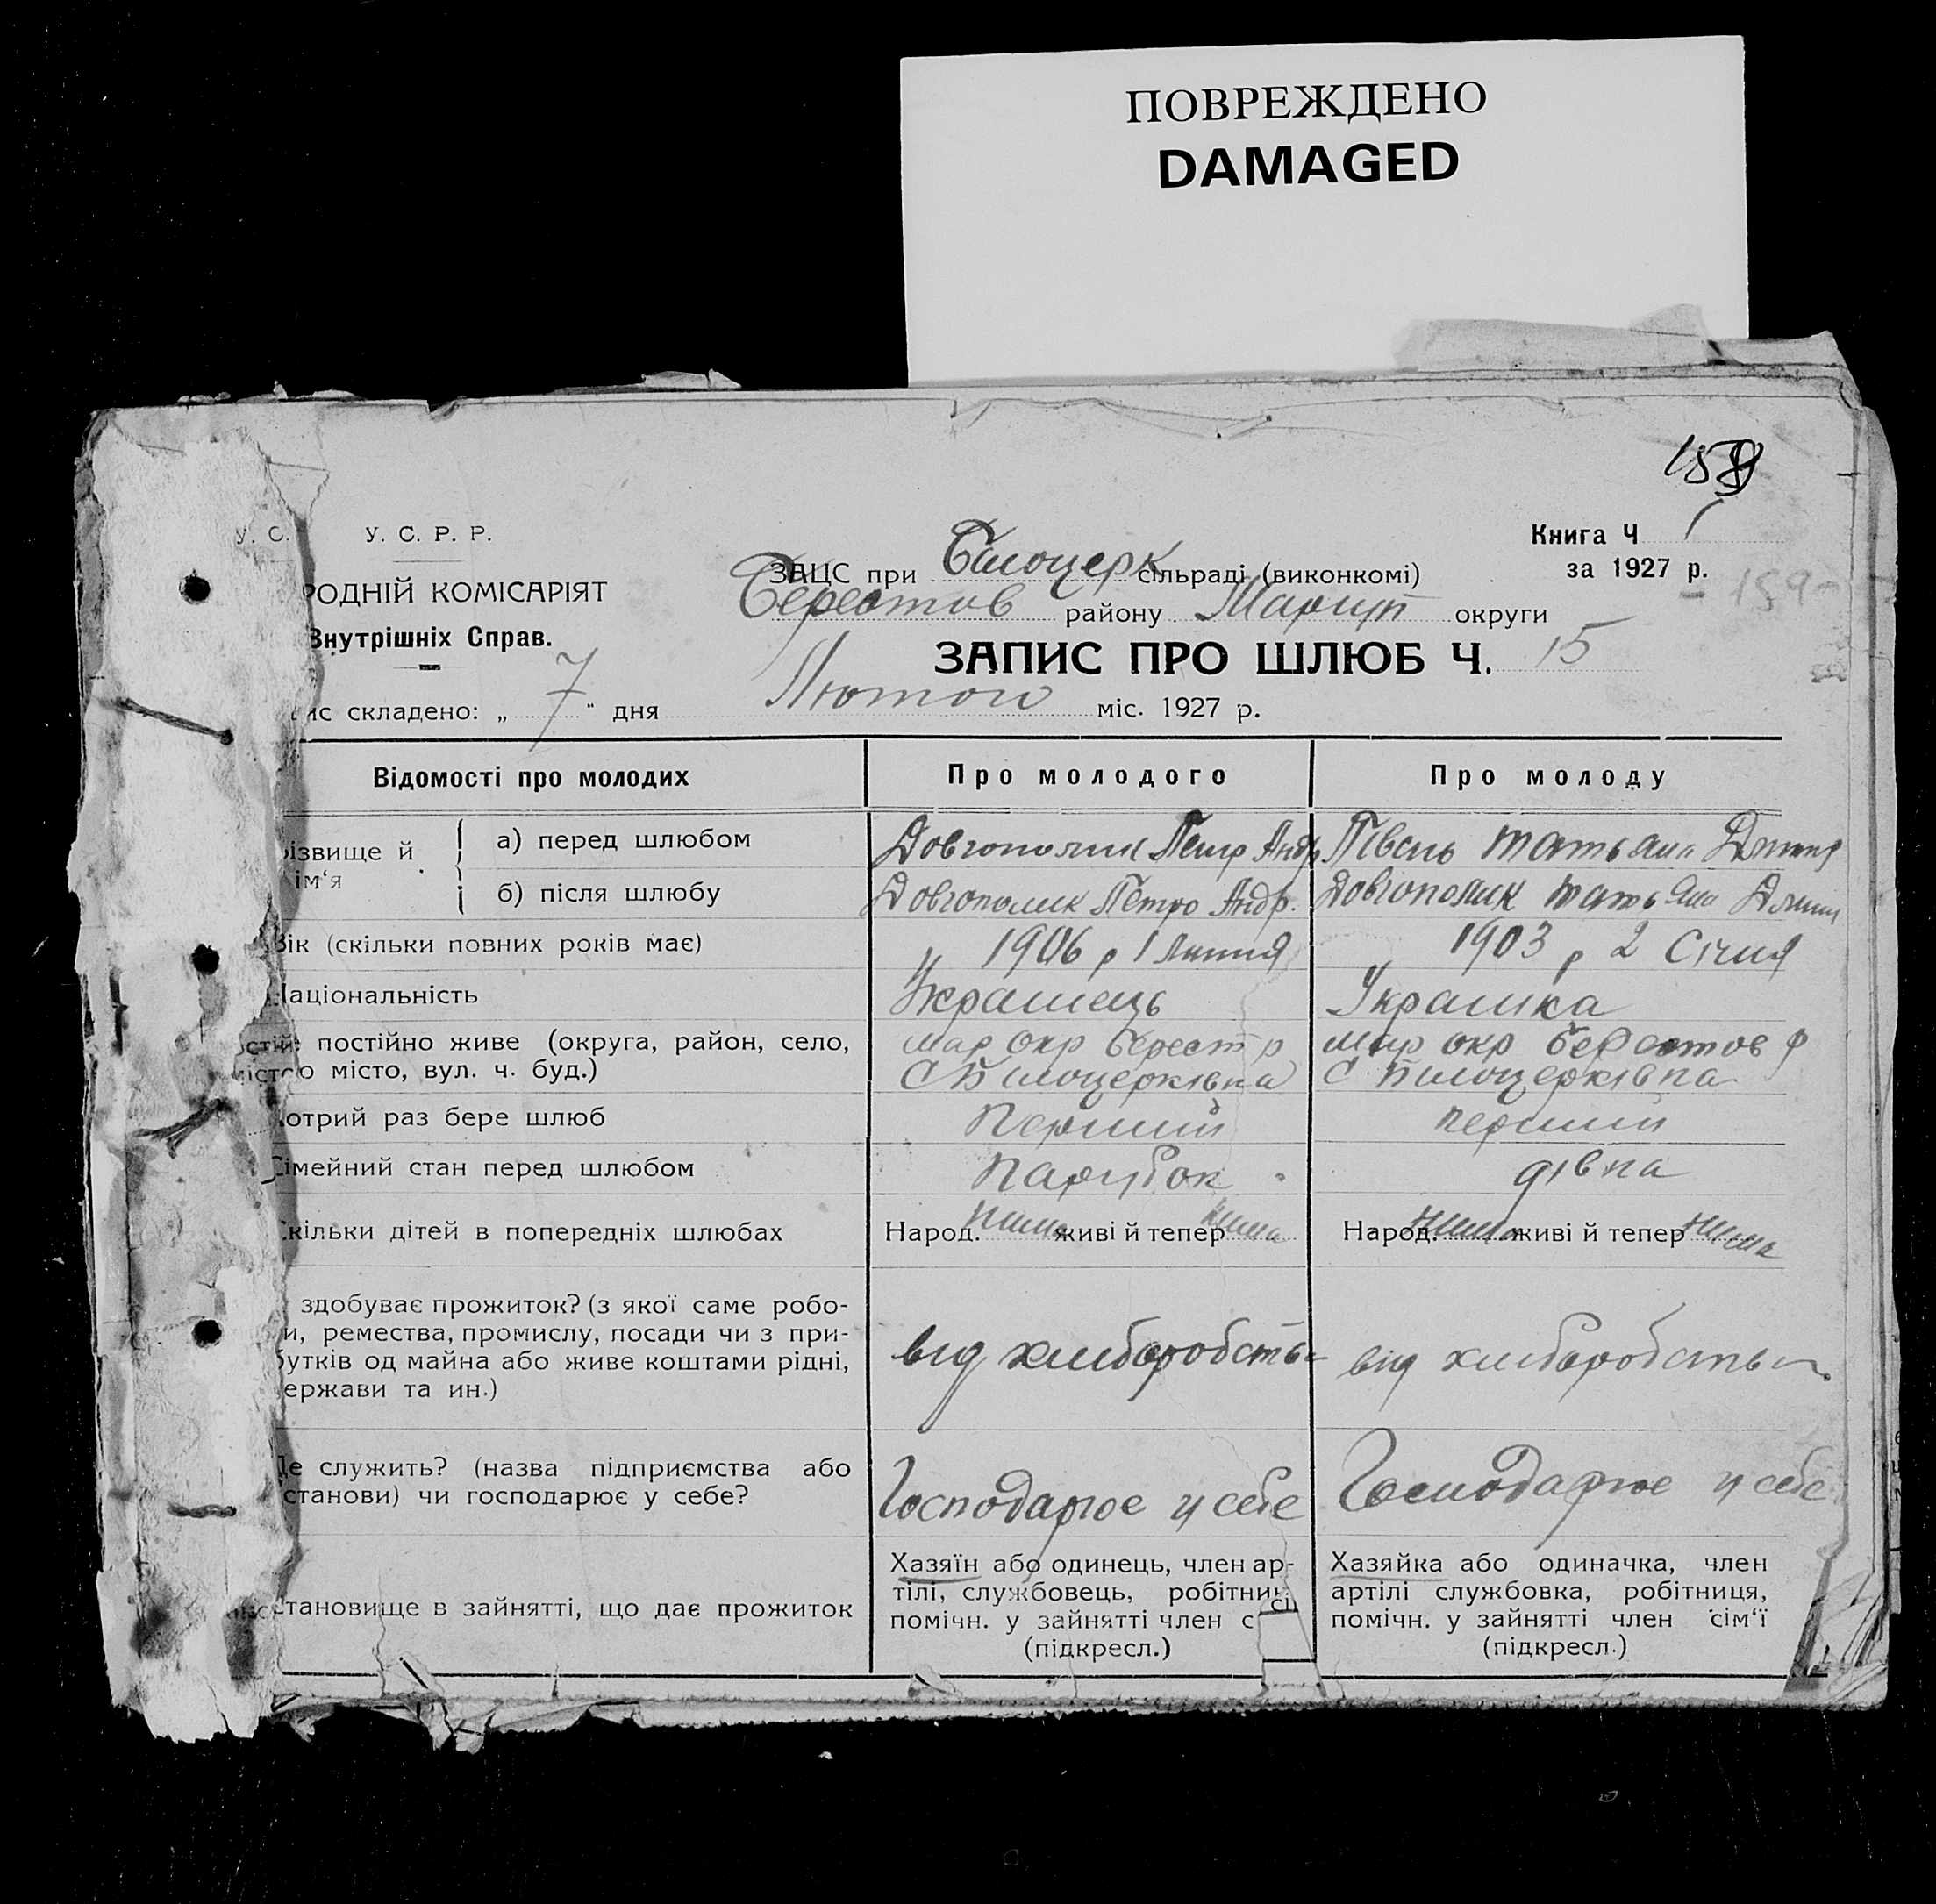 ПОВРЕЖДЕНО
DAMAGED
158
У. С. У. С. Р. Р.
Книга Ч 1
РОДНІЙ КОМІСАРІЯТ
ЗАЦС при Білоцерк сільраді (виконкомі)
за 1927 р.
159
Внутрішніх Справ.
Берестов району Маріуп округи
ЗАПИС ПРО ШЛЮБ Ч. 15
ис складено: „ 7 “ дня Лютого міс. 1927 р.
Відомості про молодих
Про молодого
Про молоду
ізвище й ім‘я
а) перед шлюбом
Довгополик Петр Андр
Півень Татьяна
б) після шлюбу
Довгополик Петро Андр.
Довгополик Татьяна
Вік (скільки повних років має)
1906 р 1 Липня
1903 р 2 Січня
Національність
Українець
Українка
постійно живе (округа, район, село,
місто, вул. ч. буд.)
Мар Окр Берест р
С Білоцерківка
Мар окр Берестов р
С Білоцерківка
отрий раз бере шлюб
Перший
перший
Сімейний стан перед шлюбом
Парубок
дівка
кільки дітей в попередніх шлюбах
Народ. нима живі й тепер нима
Народ. нима живі й тепер нима
здобуває прожиток? (з якої саме робо-
и, ремества, промислу, посади чи з при-
бутків од майна або живе коштами рідні,
ержави та ин.)
від хліборобства
від хліборобства
Де служить? (назва підприємства або
станови) чи господарює у себе?
Господарює у себе
Господарює у себе
становище в зайнятті, що дає прожиток
Хазяїн або одинець, член ар-
тілі, службовець, робітник,
помічн. у зайнятті член сі
(підкресл.)
Хазяйка або одиначка, член
артілі службовка, робітниця,
помічн. у зайнятті член сім‘ї
(підкресл.)